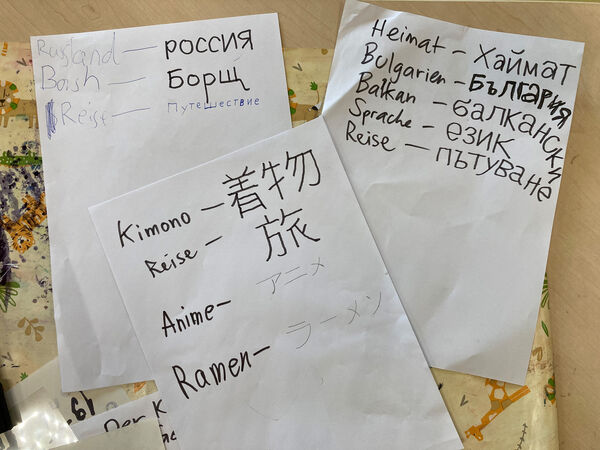 Russland — РОССИЯ
Borsh — Борщ
Reise — Путешествие
Heimat – Хаймат
Bulgarien – БЪЛГАРИЯ
Balkan – балкански
Sprache – език
Reise – пътуване
Kimono – 着物
Reise – 旅
Anime – アニメ
Ramen – ラーメン
Der K